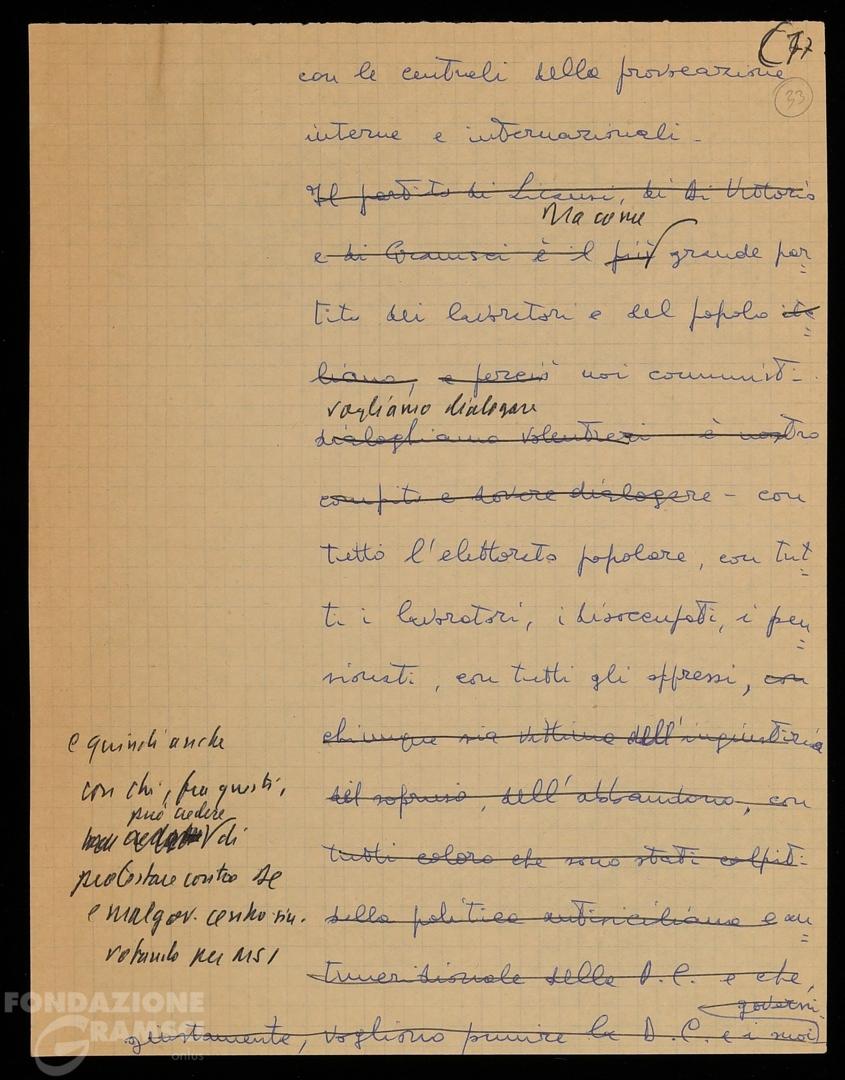 77
33
con le centrali della provocazione
interne e internazionali.
Il partito di Licausi, di Di Vittorio
Ma come
e di Gramsci è il più grande par
tito dei lavoratori e del popolo ita
liano, e perciò noi comunisti
vogliamo dialogare
dialoghiamo volentieri è nostro
compito e dovere dialogare - con
tutto l'elettorato popolare, con tut
ti i lavoratori, i disoccupati, i pen
sionati, con tutti gli oppressi, con
chiunque sia vittima dell'ingiustizia
del sopruso, dell'abbandono, con
tutti coloro che sono stati colpiti
dalla politica antisiciliana e an
timeridionale della D.C. e che,
governi
giustamente, vogliono punire la D.C. e i suoi
e quindi anche
con chi, fra questi,
può credere
di
protestare contro DC
e malgov. centro sin.
votando per MSI
FONDAZIONE
GRAMSCI
onlus